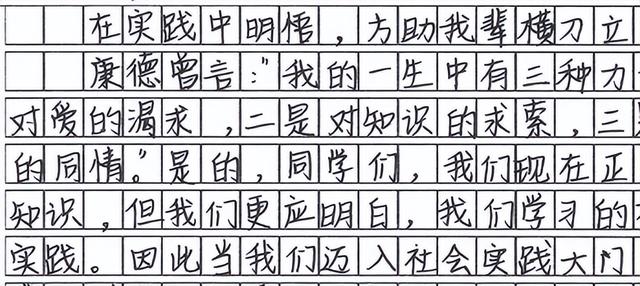 在实践中明悟，方助我辈横刀立
康德曾言："我的一生中有三种力
对爱的渴求，二是对知识的求索，三
的同情。"是的，同学们，我们现在正
知识，但我们更应明白，我们学习的
实践。因此当我们迈入社会实践大门